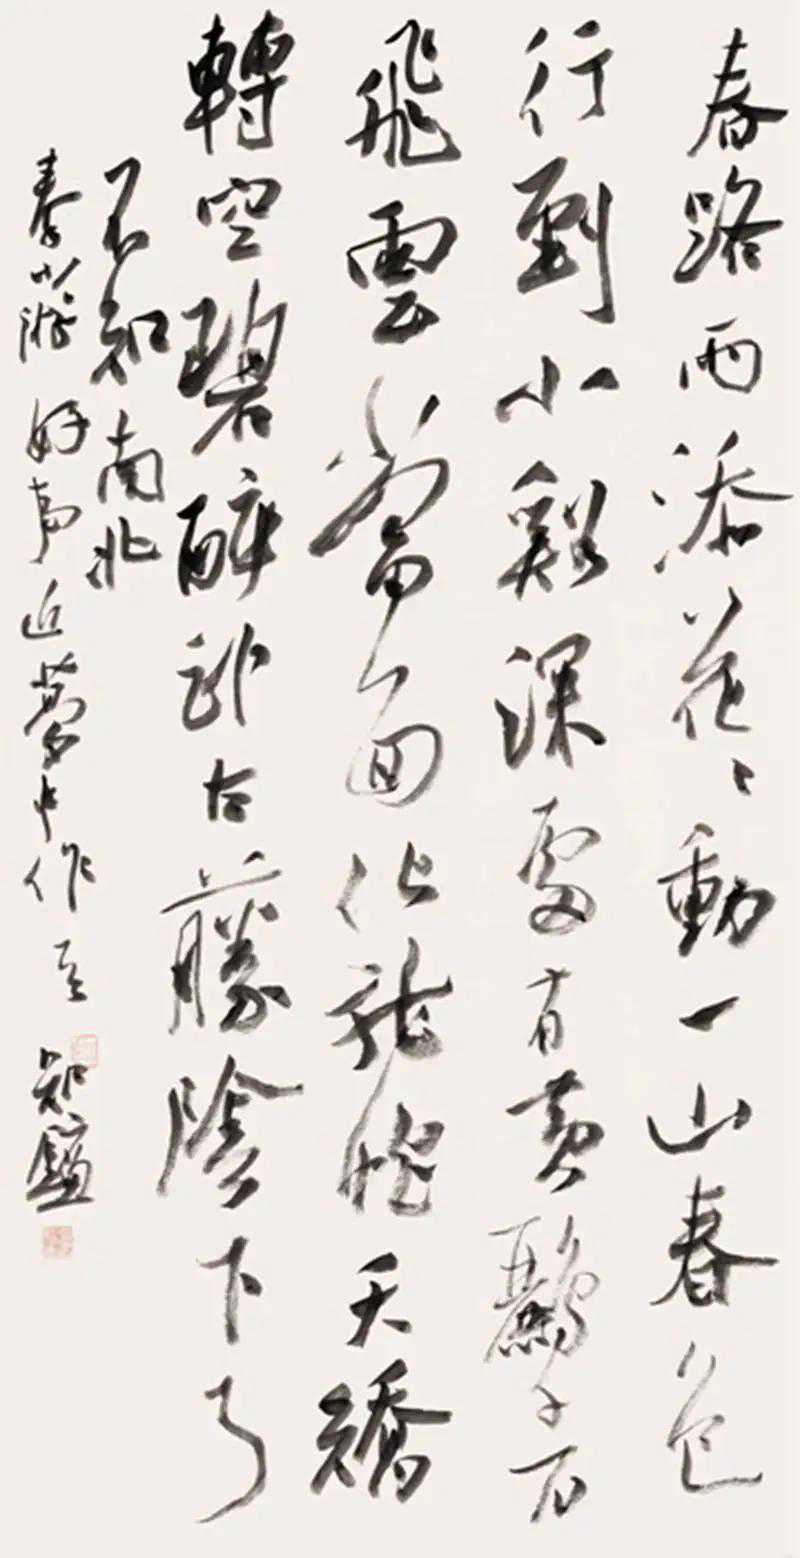 春路雨添花〻動一山春色
行到小谿深處有黃鸝千百
飛雲當面化龍蛇夭矯
轉空碧醉卧古藤陰下了
不知南北
秦少游好事近夢中作